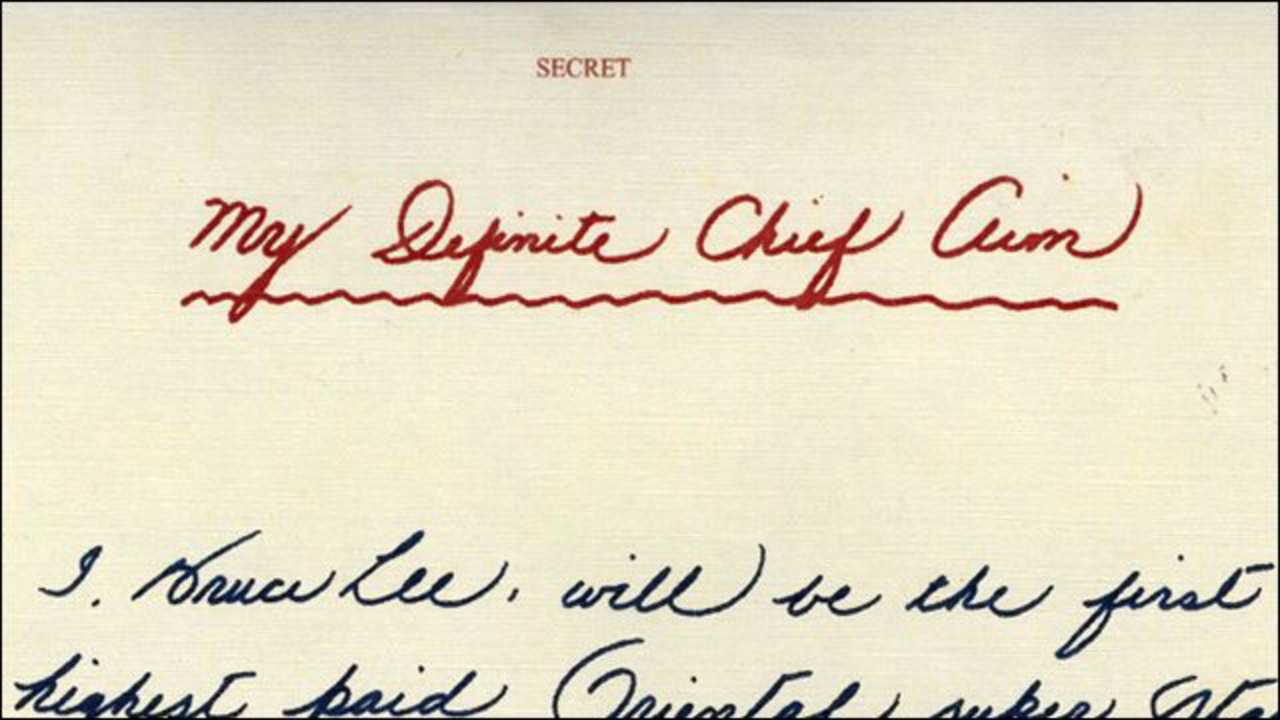 SECRET
My Definite Chief Aim
I, Bruce Lee, will be the first
highest paid Oriental super Sta